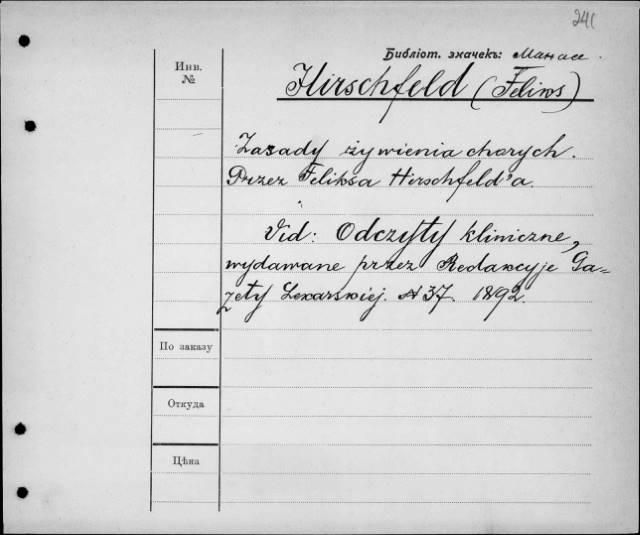 241
Библіот. значекъ: Манас.
Инв. №
Hirschfeld (Feliks)
Zasady żywienia chorych.
Przez Feliksa Hirschfeld'a.
Vid: Odczyty kliniczne,
wydawane przez Redakcyje Ga=
zety Lekarskiej. N 37. 1892.
По заказу
Откуда
Цѣна